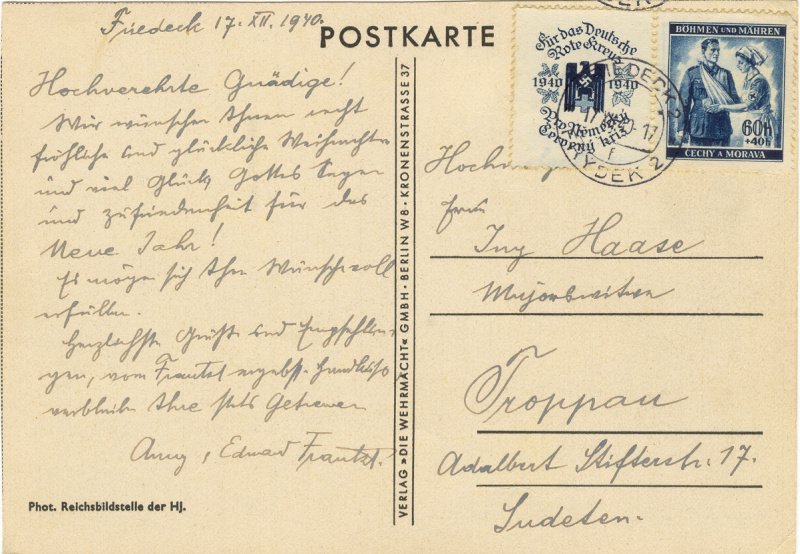 Friedeck 17. XII. 1940.
POSTKARTE
Hochverehrte Gnädige!
Wir wünschen Ihnen recht
fröhliche und glückliche Weihnachten
und viel Glück Gottes Segen
und Zufriedenheit für das
Neue Jahr!
Es möge sich Ihr Wunsch voll
erfüllen.
Herzlichste Grüße und Empfehlun-
gen, vom Frantzl ergebst. Handkuss
verbleiben Ihre stets Getreuen
Anny, Eduard Frantzl.
Phot. Reichsbildstelle der HJ.
VERLAG »DIE WEHRMACHT« GMBH · BERLIN W8 · KRONENSTRASSE 37
Für das Deutsche
Rote Kreuz
1940 1940
Pro Německý
červený kříž
BÖHMEN UND MÄHREN
60h
+40h
ČECHY A MORAVA
FRIEDECK 2
MÍSTEK 2
Frau
Ing Haase
Majorswitwe
Troppau
Adalbert Stifterstr. 17.
Sudeten.